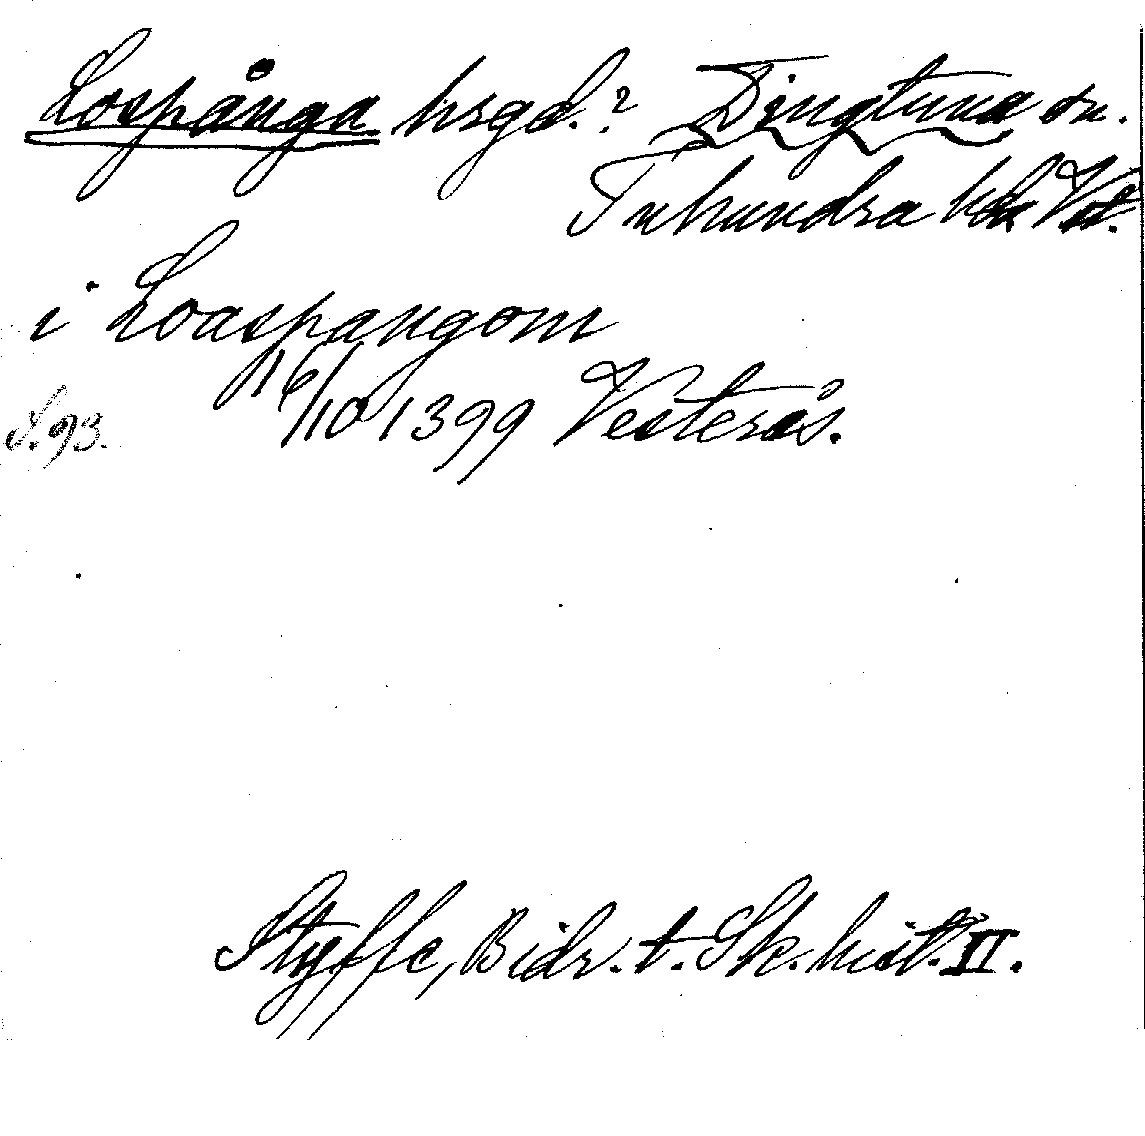 Lospånga hrgd.? Dingtuna sn.
Tuhundra hd Vstm.
i Loaspangom
16/10 1399 Vesterås.
S. 93.
Styffe, Bidr. t. Sk. hist. II.